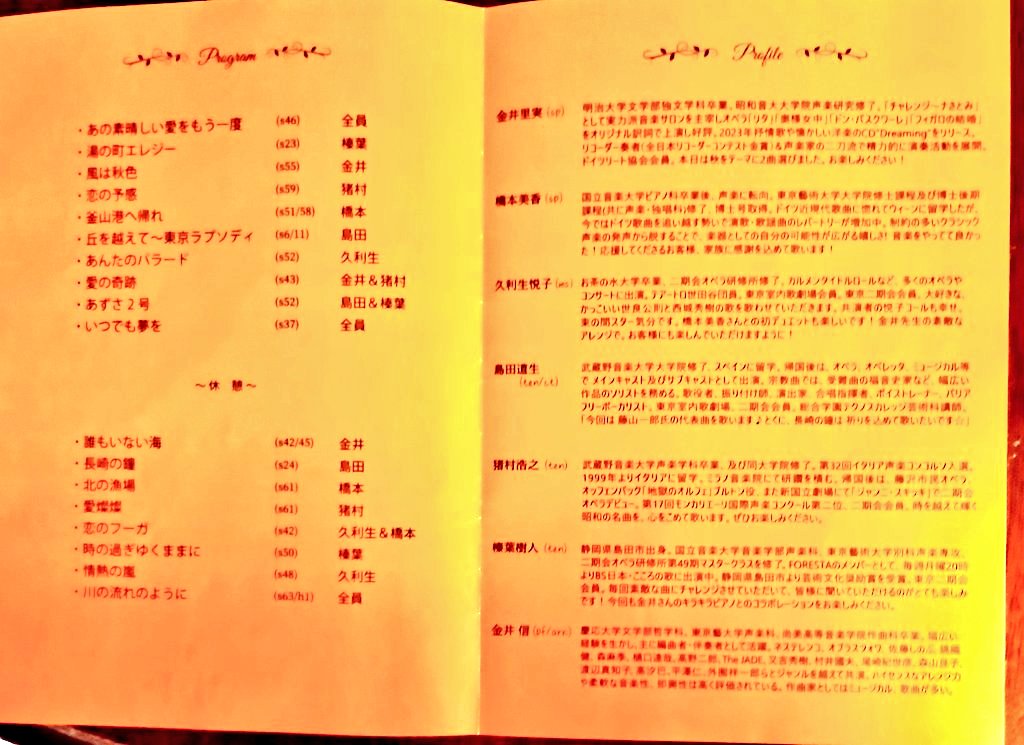 Program
・あの素晴しい愛をもう一度 (s46) 全員
・湯の町エレジー (s23) 榛葉
・風は秋色 (s55) 金井
・恋の予感 (s59) 猪村
・釜山港へ帰れ (s51/58) 橋本
・丘を越えて〜東京ラプソディ (s6/11) 島田
・あんたのバラード (s52) 久利生
・愛の奇跡 (s43) 金井＆猪村
・あずさ２号 (s52) 島田＆榛葉
・いつでも夢を (s37) 全員
〜休 憩〜
・誰もいない海 (s42/45) 金井
・長崎の鐘 (s24) 島田
・北の漁場 (s61) 橋本
・愛燦燦 (s61) 猪村
・恋のフーガ (s42) 久利生＆橋本
・時の過ぎゆくままに (s50) 榛葉
・情熱の嵐 (s48) 久利生
・川の流れのように (s63/h1) 全員
Profile
金井里実(sp) 明治大学文学部独文学科卒業。昭和音大大学院声楽研究修了。「チャレンジーナさとみ」
として実力派音楽サロンを主宰しオペラ「リタ」「奥様女中」「ドン・パスクワーレ」「フィガロの結婚」
をオリジナル訳詞で上演し好評。2023年抒情歌や懐かしい洋楽のCD"Dreaming"をリリース。
リコーダー奏者(全日本リコーダーコンテスト金賞)＆声楽家の二刀流で精力的に演奏活動を展開。
ドイツリート協会会員。本日は秋をテーマに2曲選びました。お楽しみください！
橋本美香(sp) 国立音楽大学ピアノ科卒業後、声楽に転向。東京藝術大学大学院修士課程及び博士後期
課程(共に声楽・独唱科)修了、博士号取得。ドイツ近現代歌曲に惚れてウィーンに留学したが、
今ではドイツ歌曲を追い越す勢いで演歌・歌謡曲のレパートリーが増加中。制約の多いクラシック
声楽の発声から脱することで、楽器としての自分の可能性が広がる嬉しさ！音楽をやってて良かっ
た！応援してくださるお客様、家族に感謝を込めて歌います！
久利生悦子(ms) お茶の水大学卒業、二期会オペラ研修所修了。カルメンタイトルロールなど、多くのオペラや
コンサートに出演。テアートロ世田谷団員。東京室内歌劇場会員。東京二期会会員。大好きな、
かっこいい世良公則と西城秀樹の歌を歌わせていただきます。共演者の悦子コールも幸せ、
束の間スター気分です。橋本美香さんとの初デュエットも楽しいです！金井先生の素敵な
アレンジで、お客様にも楽しんでいただけますように！
島田道生
(ten/ct) 武蔵野音楽大学大学院修了。スペインに留学。帰国後は、オペラ、オペレッタ、ミュージカル等
でメインキャスト及びサブキャストとして出演。宗教曲では、受難曲の福音史家など、幅広い
作品のソリストを務める。歌役者、振り付け師、演出家、合唱指揮者、ボイストレーナー、バリア
フリーボーカリスト。東京室内歌劇場、二期会会員。総合学園テクノスカレッジ芸術科講師。
「今回は 藤山一郎氏の代表曲を歌います♪とくに、長崎の鐘は 祈りを込めて歌いたいです☆」
猪村浩之(ten) 武蔵野音楽大学声楽学科卒業、及び同大学院修了。第32回イタリア声楽コンコルソ入選。
1999年よりイタリアに留学。ミラノ音楽院にて研鑽を積む。帰国後は、藤沢市民オペラ、
オッフェンバック「地獄のオルフェ」プルトン役、また新国立劇場にて「ジャンニ・スキッキ」で二期会
オペラデビュー。第17回モンカリエーリ国際声楽コンクール第二位。二期会会員。時を越えて輝く
昭和の名曲を、心をこめて歌います。ぜひお楽しみください。
榛葉樹人(ten) 静岡県島田市出身。国立音楽大学音楽学部声楽科、東京藝術大学別科声楽専攻、
二期会オペラ研修所第49期マスタークラスを修了。FORESTAのメンバーとして、毎週月曜20時
よりBS日本・こころの歌に出演中。静岡県島田市より芸術文化奨励賞を受賞。東京二期会
会員。毎回素敵な曲にチャレンジさせていただいて、皆様に聞いていただけるのがとても楽しみ
です！今回も金井さんのキラキラピアノとのコラボレーションをお楽しみください。
金井信(pf/arr) 慶応大学文学部哲学科、東京藝大学声楽科、尚美高等音楽学院作曲科卒業。幅広い
経験を生かし、主に編曲者・伴奏者として活躍。ネステレンコ、オブラスツォワ、佐藤しのぶ、錦織
健、森麻季、樋口達哉、高野二郎、The JADE、又吉秀樹、村井國夫、尾崎紀世彦、森山良子、
渡辺真知子、高汐巴、平澤仁、外囿祥一郎らとジャンルを越えて共演。ハイセンスなアレンジ力
や柔軟な音楽性、即興性は高く評価されている。作曲家としてはミュージカル、歌曲が多い。